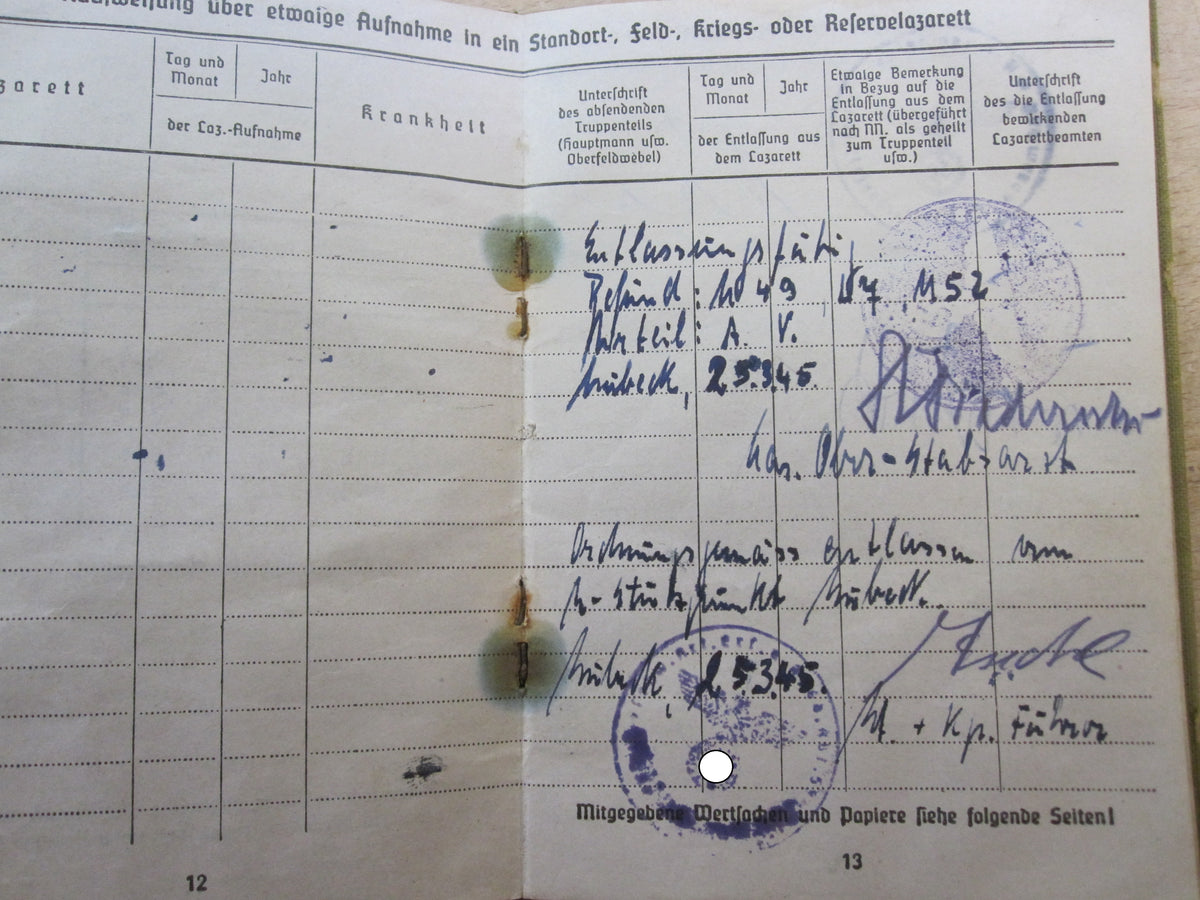 über etwaige Aufnahme in ein Standort-, Feld-, Kriegs- oder Reservelazarett
zarett
Tag und Monat
Jahr
der Laz.-Aufnahme
Krankheit
Unterschrift
des absendenden
Truppenteils
(Hauptmann usw.
Oberfeldwebel)
Tag und
Monat
Jahr
der Entlassung aus
dem Lazarett
Etwaige Bemerkung
in Bezug auf die
Entlassung aus dem
Lazarett (übergeführt
nach NN. als geheilt
zum Truppenteil
usw.)
Unterschrift
des die Entlassung
bewirkenden
Lazarettbeamten
Befund: U 49 M 52
Urteil: A. V.
Lübeck, 25.3.45.
Ober-Stabsarzt
Ordnungsgemäss entlassen vom
Stützpunkt Lübeck.
Lübeck, 25.3.45.
Lt. + Kp. Führer
Mitgegebene Wertsachen und Papiere siehe folgende Seiten!
12
13